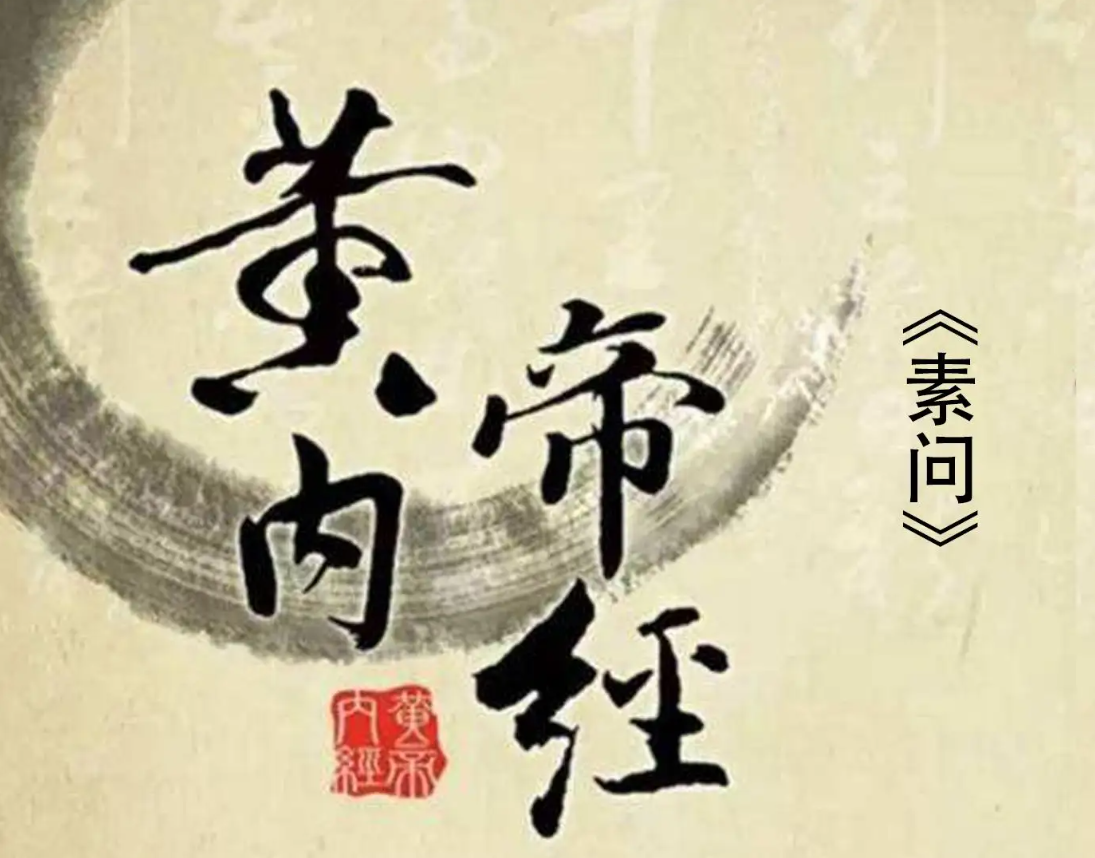 黄帝
内經
《素问》
黄帝
内經